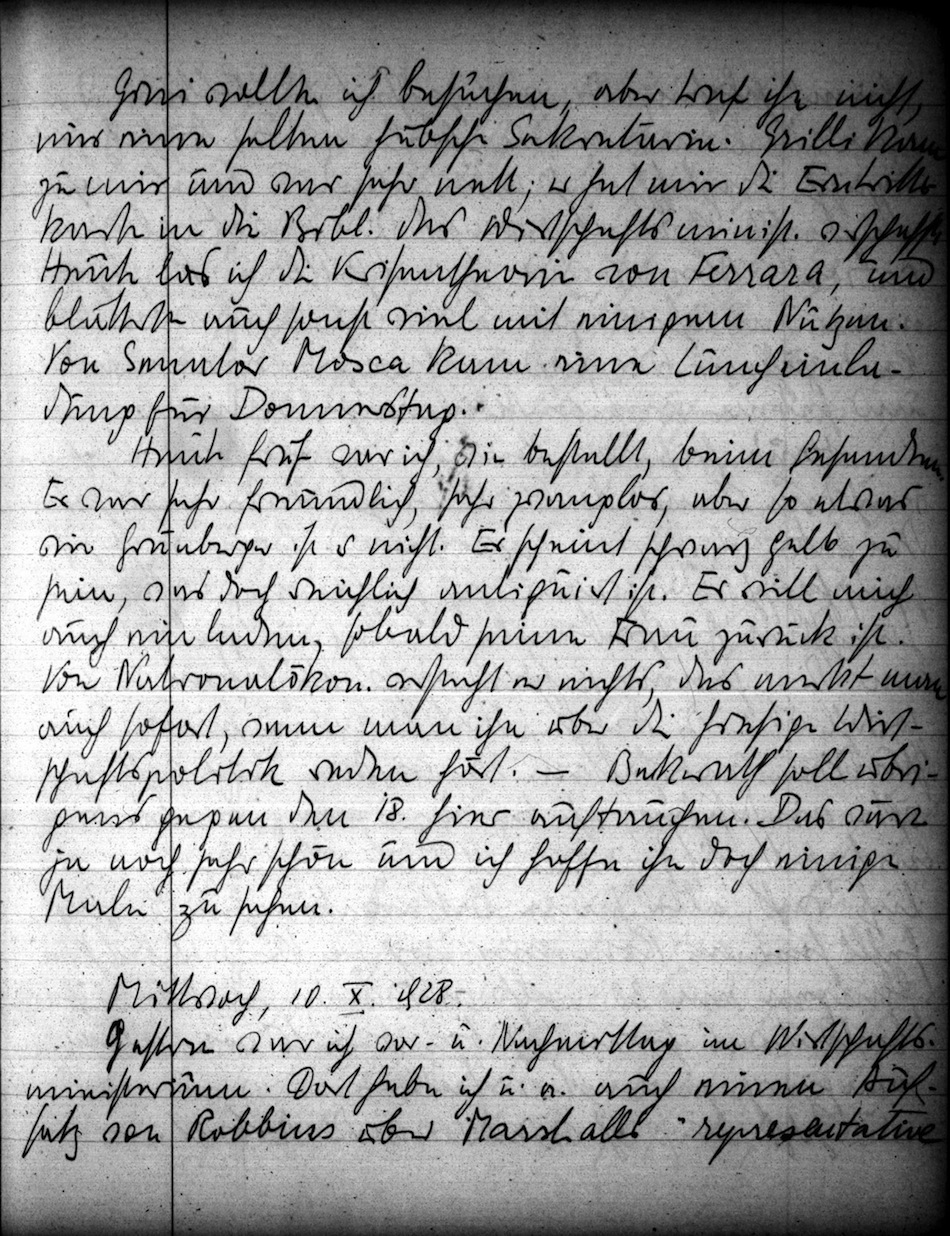 Gini wollte ich besuchen, aber traf ihn nicht,
nur eine selten hübsche Sekretärin. Grilli kam
zu mir und war sehr nett; er hat mir die Eintritts-
karte in die Bibl. des Wirtschaftsminist. verschafft.
Heute las ich die Krisentheorie von Ferrara, und
blätterte auch sonst viel mit einigem Nutzen.
Von Senator Mosca kam eine Luncheinla-
dung für Donnerstag.
Heute früh war ich, wie bestellt, beim Gesandten.
Er war sehr freundlich, sehr zwanglos, aber so etwas
wie Grünberger ist er nicht. Er scheint schwarz gelb zu
sein, was doch reichlich antiquiert ist. Er will mich
auch einladen, sobald seine Frau zurück ist.
Von Nationalökon. versteht er nichts, das merkt man
auch sofort, wenn man ihn über die hiesige Wirt-
schaftspolitik reden hört. — Beckerath soll übri-
gens gegen den 18. hier auftauchen. Das wäre
ja noch sehr schön und ich hoffe ihn doch einige
Male zu sehen.
Mittwoch, 10. X. 1928.
Gestern war ich vor- u. Nachmittag im Wirtschafts-
ministerium. Dort habe ich u. a. auch einen Auf-
satz von Robbins über Marshalls "representative